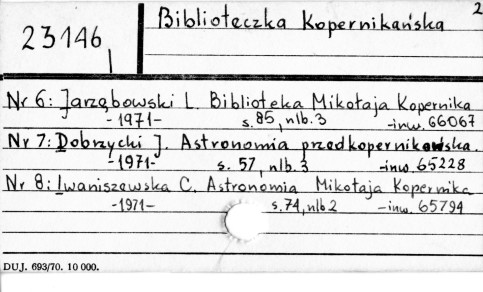 2
23146
Biblioteczka Kopernikańska
Nr 6: Jarzębowski L. Biblioteka Mikołaja Kopernika
-1971- s. 85, nlb. 3 -inw. 66067
Nr 7: Dobrzycki J. Astronomia przedkopernikowska.
-1971- s. 57, nlb. 3 -inw. 65228
Nr 8: Iwaniszewska C. Astronomia Mikołaja Kopernika
-1971- s. 74, nlb 2 -inw. 65794
DUJ. 693/70. 10 000.